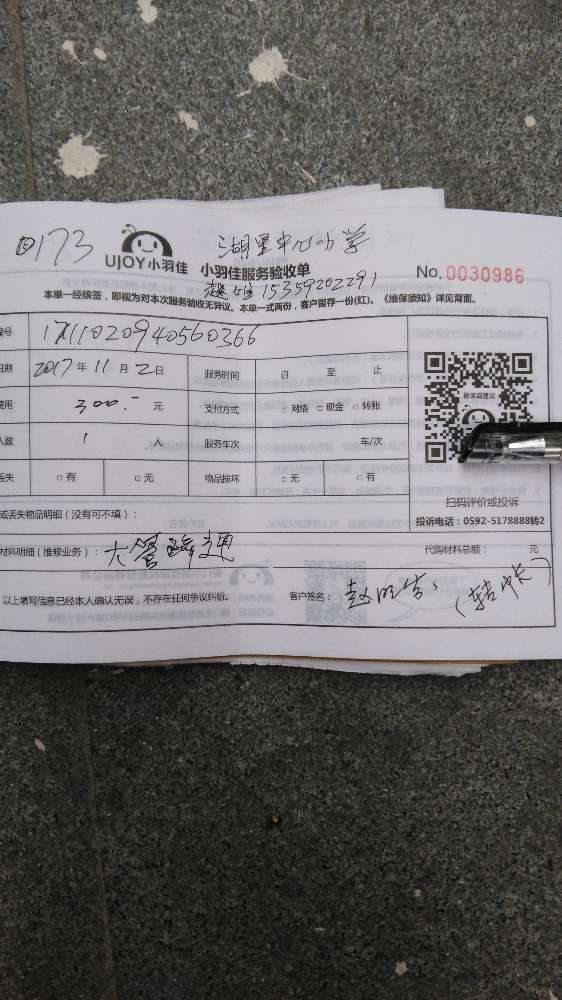 0173 湖里中心小学
UJOY小羽佳 小羽佳服务验收单 No.0030986
15359202291
本单一经核签,即视为对本次服务验收无异议。本单一式两份,客户留存一份(红)。《维保须知》详见背面。
号 1711020940560366
期 2017年11月2日 服务时间 自 至 止
费用 300.- 元 支付方式 □网络 □现金 □转账
人数 1 人 服务车次 车/次
丢失 □有 □无 物品损坏 □无 □有
投诉或建议
扫码评价或投诉
投诉电话:0592-5178888转2
或丢失物品明细(没有可不填):
材料明细(维修业务): 大管疏通 代购材料总额: 元
以上填写信息已经本人确认无误,不存在任何争议纠纷。 客户签名: